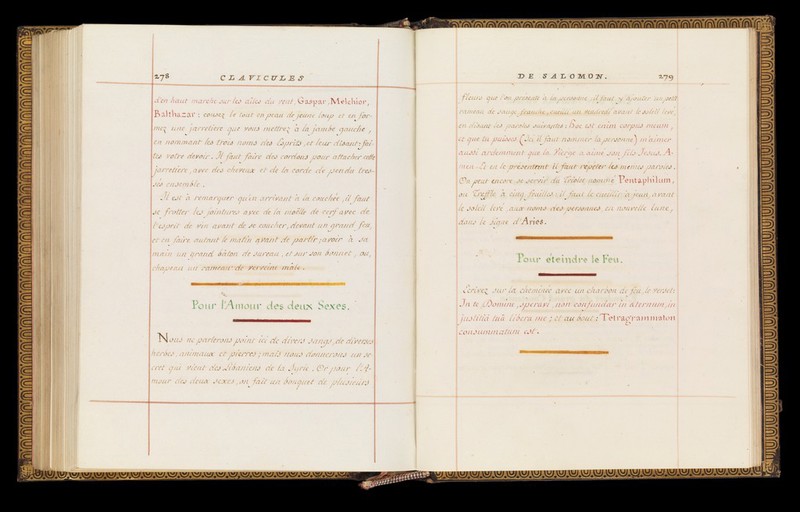 278 CLAVICULES
d'en haut marche sur les ailes du vent, Gaspar, Melchior,
Balthazar; cousez le tout en peau de jeune loup et en for-
mez une jarretière que vous mettrez à la jambe gauche,
en nommant les trois noms des Esprits, et leur disant: fai-
tes votre devoir. Il faut faire des cordons pour attacher cette
jarretière, avec des cheveux et de la corde de pendu tres-
sés ensemble.
Il est à remarquer qu'en arrivant à la couchée, il faut
se frotter les jointures avec de la moëlle de cerf avec de
l'esprit de vin avant de se coucher, devant un grand feu,
et en faire autant le matin avant de partir; avoir à sa
main un grand bâton de sureau, et sur son bonnet, ou,
chapeau un rameau de verveine mâle.
Pour l'Amour des deux Sexes.
Nous ne parlerons point ici de divers sangs, de diverses
herbes, animaux et pierres; mais nous donnerons un se-
cret qui vient des Libaniens de la Syrie. Or pour l'A-
mour des deux sexes, on fait un bouquet de plusieurs
DE SALOMON. 279
fleurs que l'on présente à la personne, il faut y ajouter un petit
rameau de sauge franche, cueilli un mercredi avant le soleil levé,
en disant les paroles suivantes: hoc est enim corpus meum,
et que tu puisses (Ici, il faut nommer la personne) m'aimer
aussi ardemment que la Vierge a aimé son fils Jesus, A-
men. Et en le présentant il faut répéter les mêmes paroles.
On peut encore se servir du Triolet nommé Pentaphilum,
ou Treffle à cinq feuilles; il faut le cueillir à jeun, avant
le soleil levé, aux noms des personnes, en nouvelle lune,
dans le signe d'Aries.
Pour éteindre le Feu.
Ecrivez sur la cheminée avec un charbon de feu le verset:
In te Domini, speravi, non confundar in æternum, in
justitia tuâ libera me; et au bout: Tetragrammaton
consummatum est.